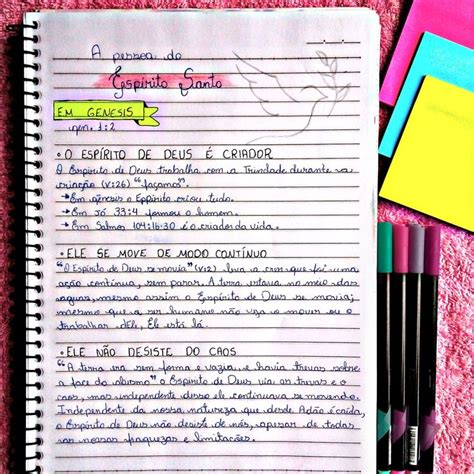 A pessoa do
Espírito Santo
EM GENESIS
gen. 1:2
• O ESPÍRITO DE DEUS É CRIADOR
O Espírito de Deus trabalha com a Trindade durante sua
criação (V:26) "façamos".
→ Em gênesis o Espírito criou tudo.
→ Em Jó 33:4 formou o homem.
→ Em Salmos 104:16-30 é o criador da vida.
• ELE SE MOVE DE MODO CONTÍNUO
"O Espírito de Deus se movia" (V:2) leva a crer que foi uma
ação contínua, sem parar. A terra estava no meio das
águas, mesmo assim o Espírito de Deus se movia;
mesmo que o ser humano não veja o mover ou o
trabalhar dEle, Ele está lá.
• ELE NÃO DESISTE DO CAOS
"A terra era sem forma e vazia, e havia trevas sobre
a face do abismo" o Espírito de Deus viu as trevas e o
caos, mas independente disso ele continuava se movendo.
Independente da nossa natureza que desde Adão é caída,
o Espírito de Deus não desiste de nós, apesar de todas
as nossas fraquezas e limitações.